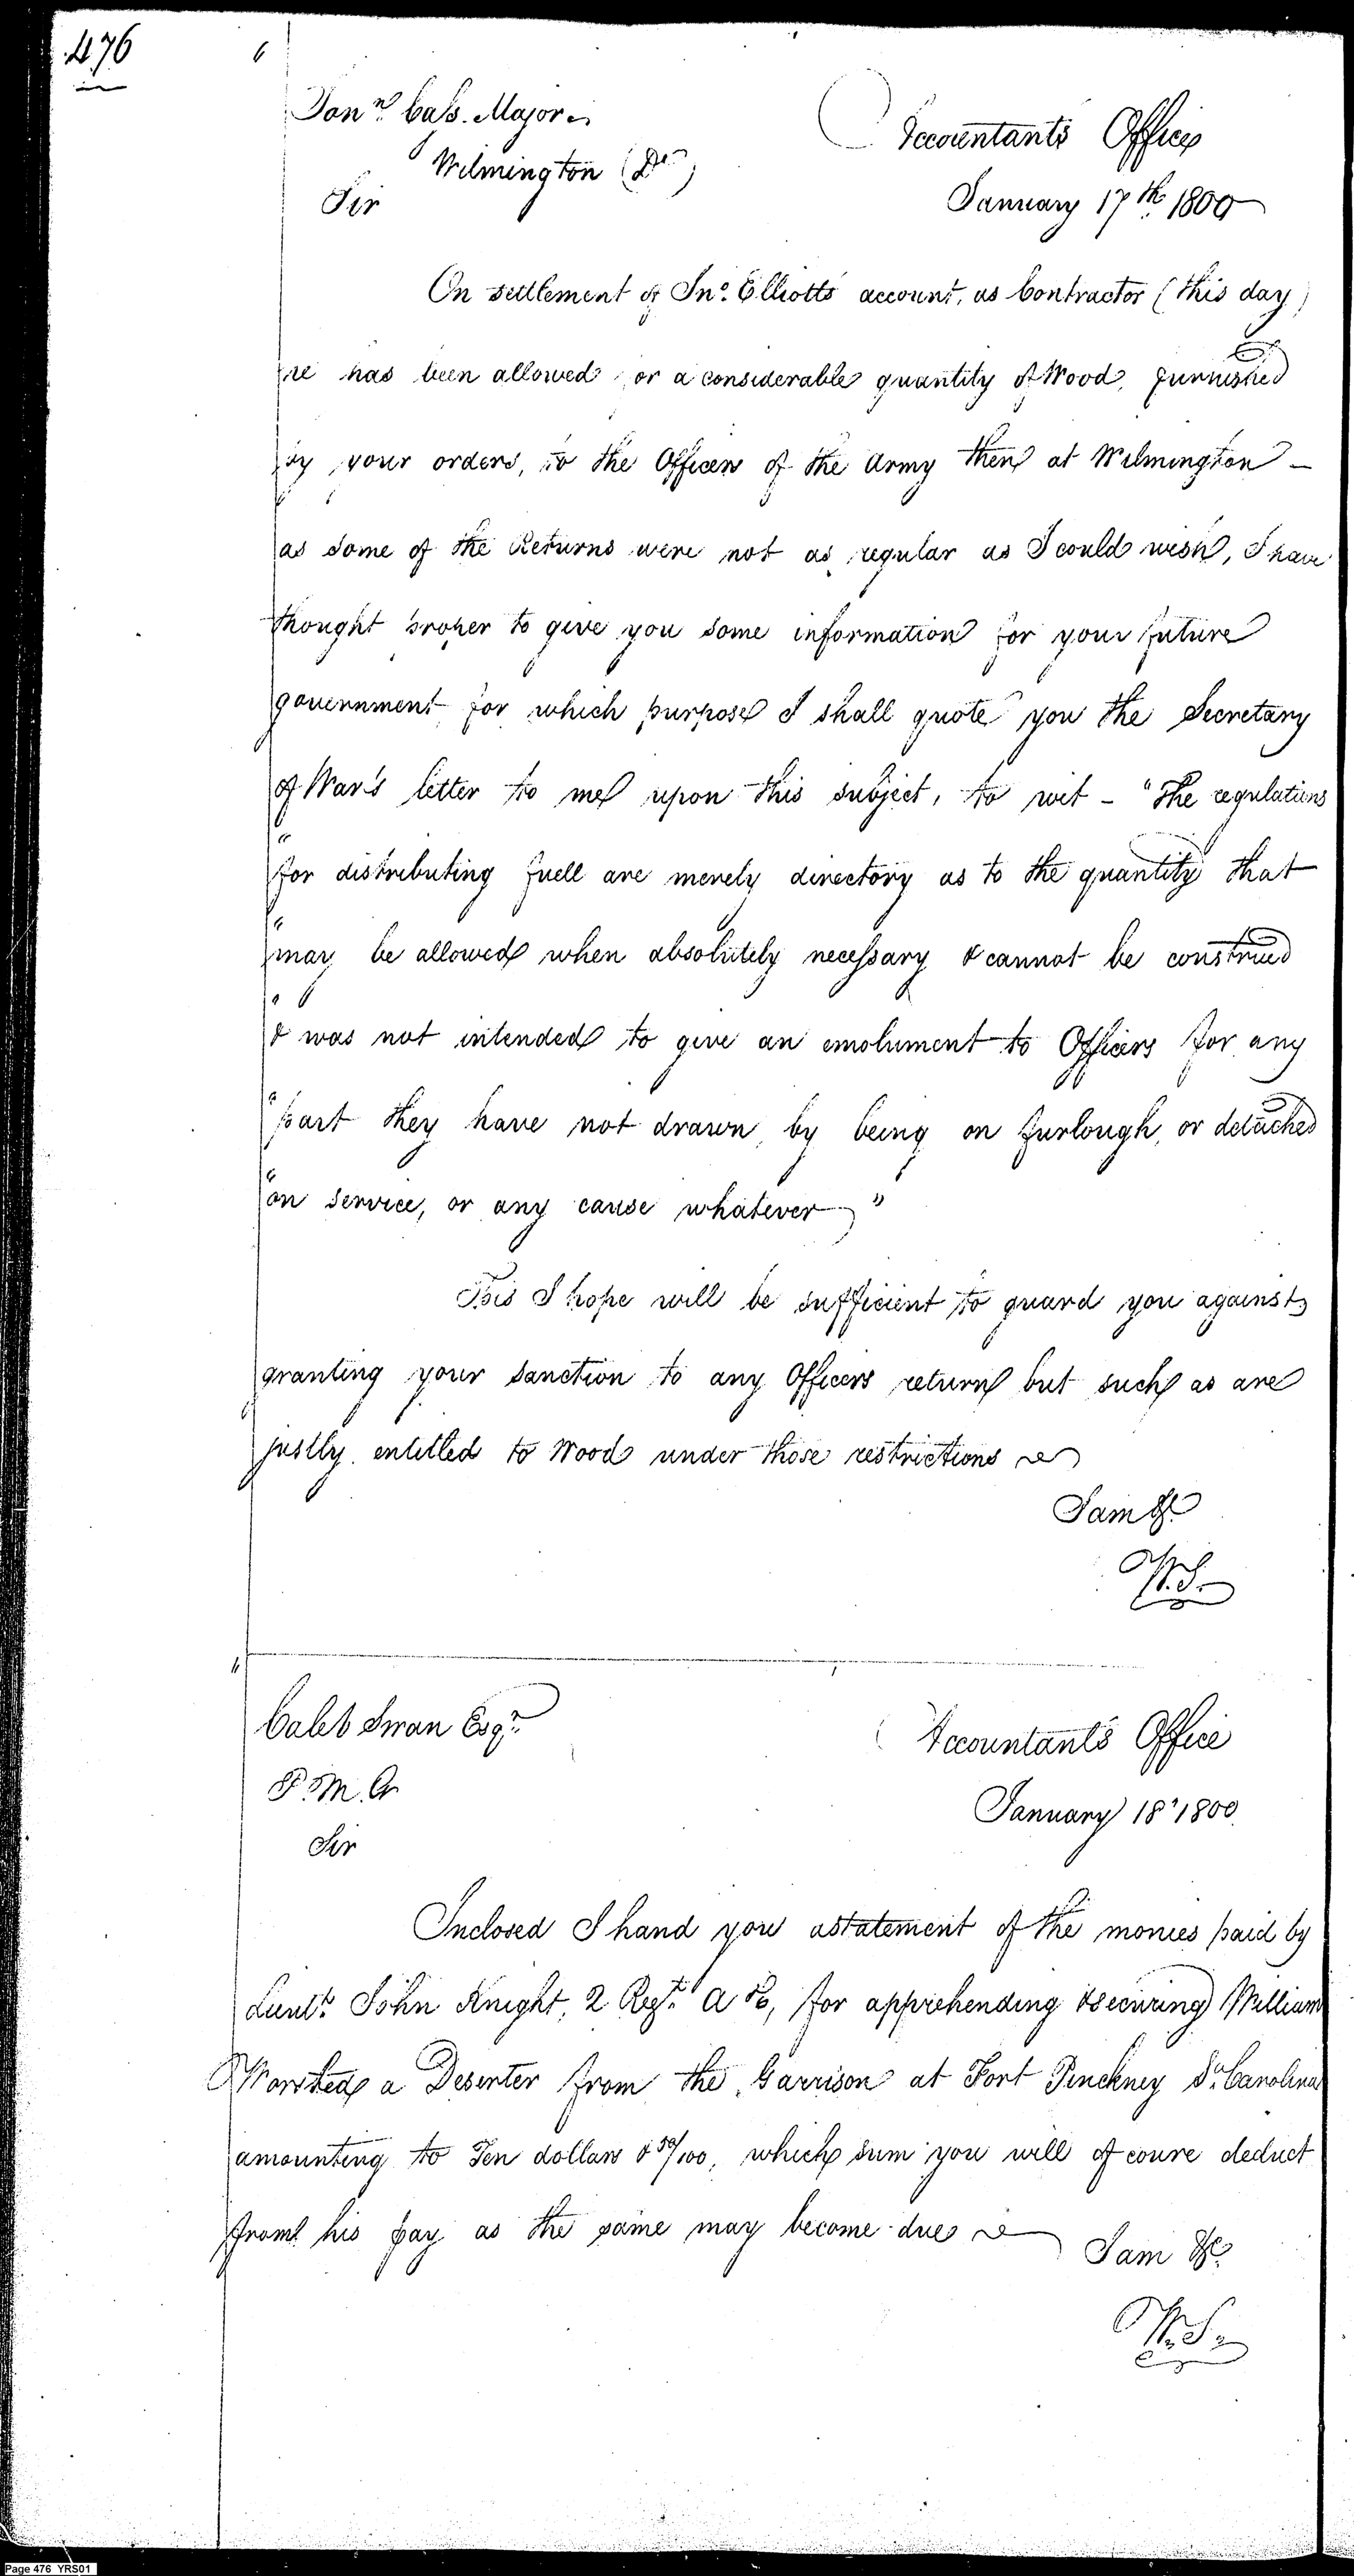 476
Jonn. Cass. Major
Accountants Office
Wilmington (De)
January 17th. 1800
Sir
On settlement of Jno. Elliotts account, as Contractor (this day)
he has been allowed for a considerable quantity of Wood, furnished
by your orders, to the Officers of the Army then at Wilmington —
as some of the Returns were not as regular as I could wish, I have
thought proper to give you some information for your future
government for which purpose I shall quote you the Secretary
of War's letter to me upon this subject, to wit – "The regulations
"for distributing fuell are merely directory as to the quantity that
"may be allowed when absolutely necessary & cannot be construed
"& was not intended to give an emolument to Officers for any
"part they have not drawn, by being on furlough, or detached
"on service, or any cause whatever"
This I hope will be sufficient to guard you against
granting your sanction to any Officers return but such as are
justly entitled to Wood under those restrictions
I am &c
W.S.
Caleb Swan Esqr.
Accountants Office
P. M. G
January 18" 1800.
Sir
Inclosed I hand you a statement of the monies paid by
Lieut. John Knight, 2 Regt. A &, for apprehending & securing William
a Deserter from the Garrison at Fort Pinckney So. Carolina
amounting to Ten dollars & 50/100, which sum you will of coure deduct
from his pay as the same may become due
I am &c
W.S.
Page 476 YRS01